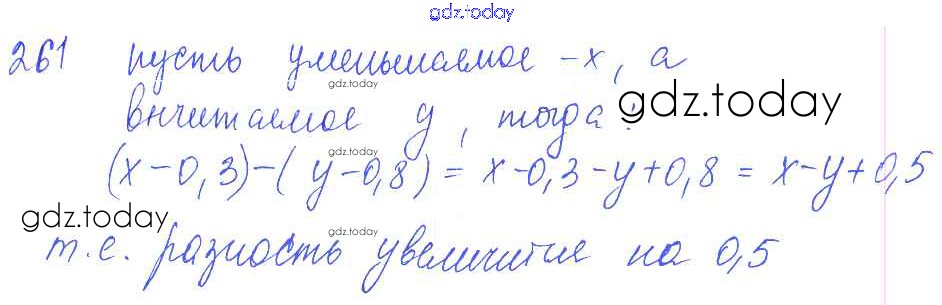 gdz.today
261 пусть уменьшаемое - х, а
gdz.today
вычитаемое у, тогда:
gdz.today
(х-0,3)-(у-0,8) = х-0,3-у+0,8 = х-у+0,5
gdz.today
gdz.today
т.е. разность увеличится на 0,5
gdz.today